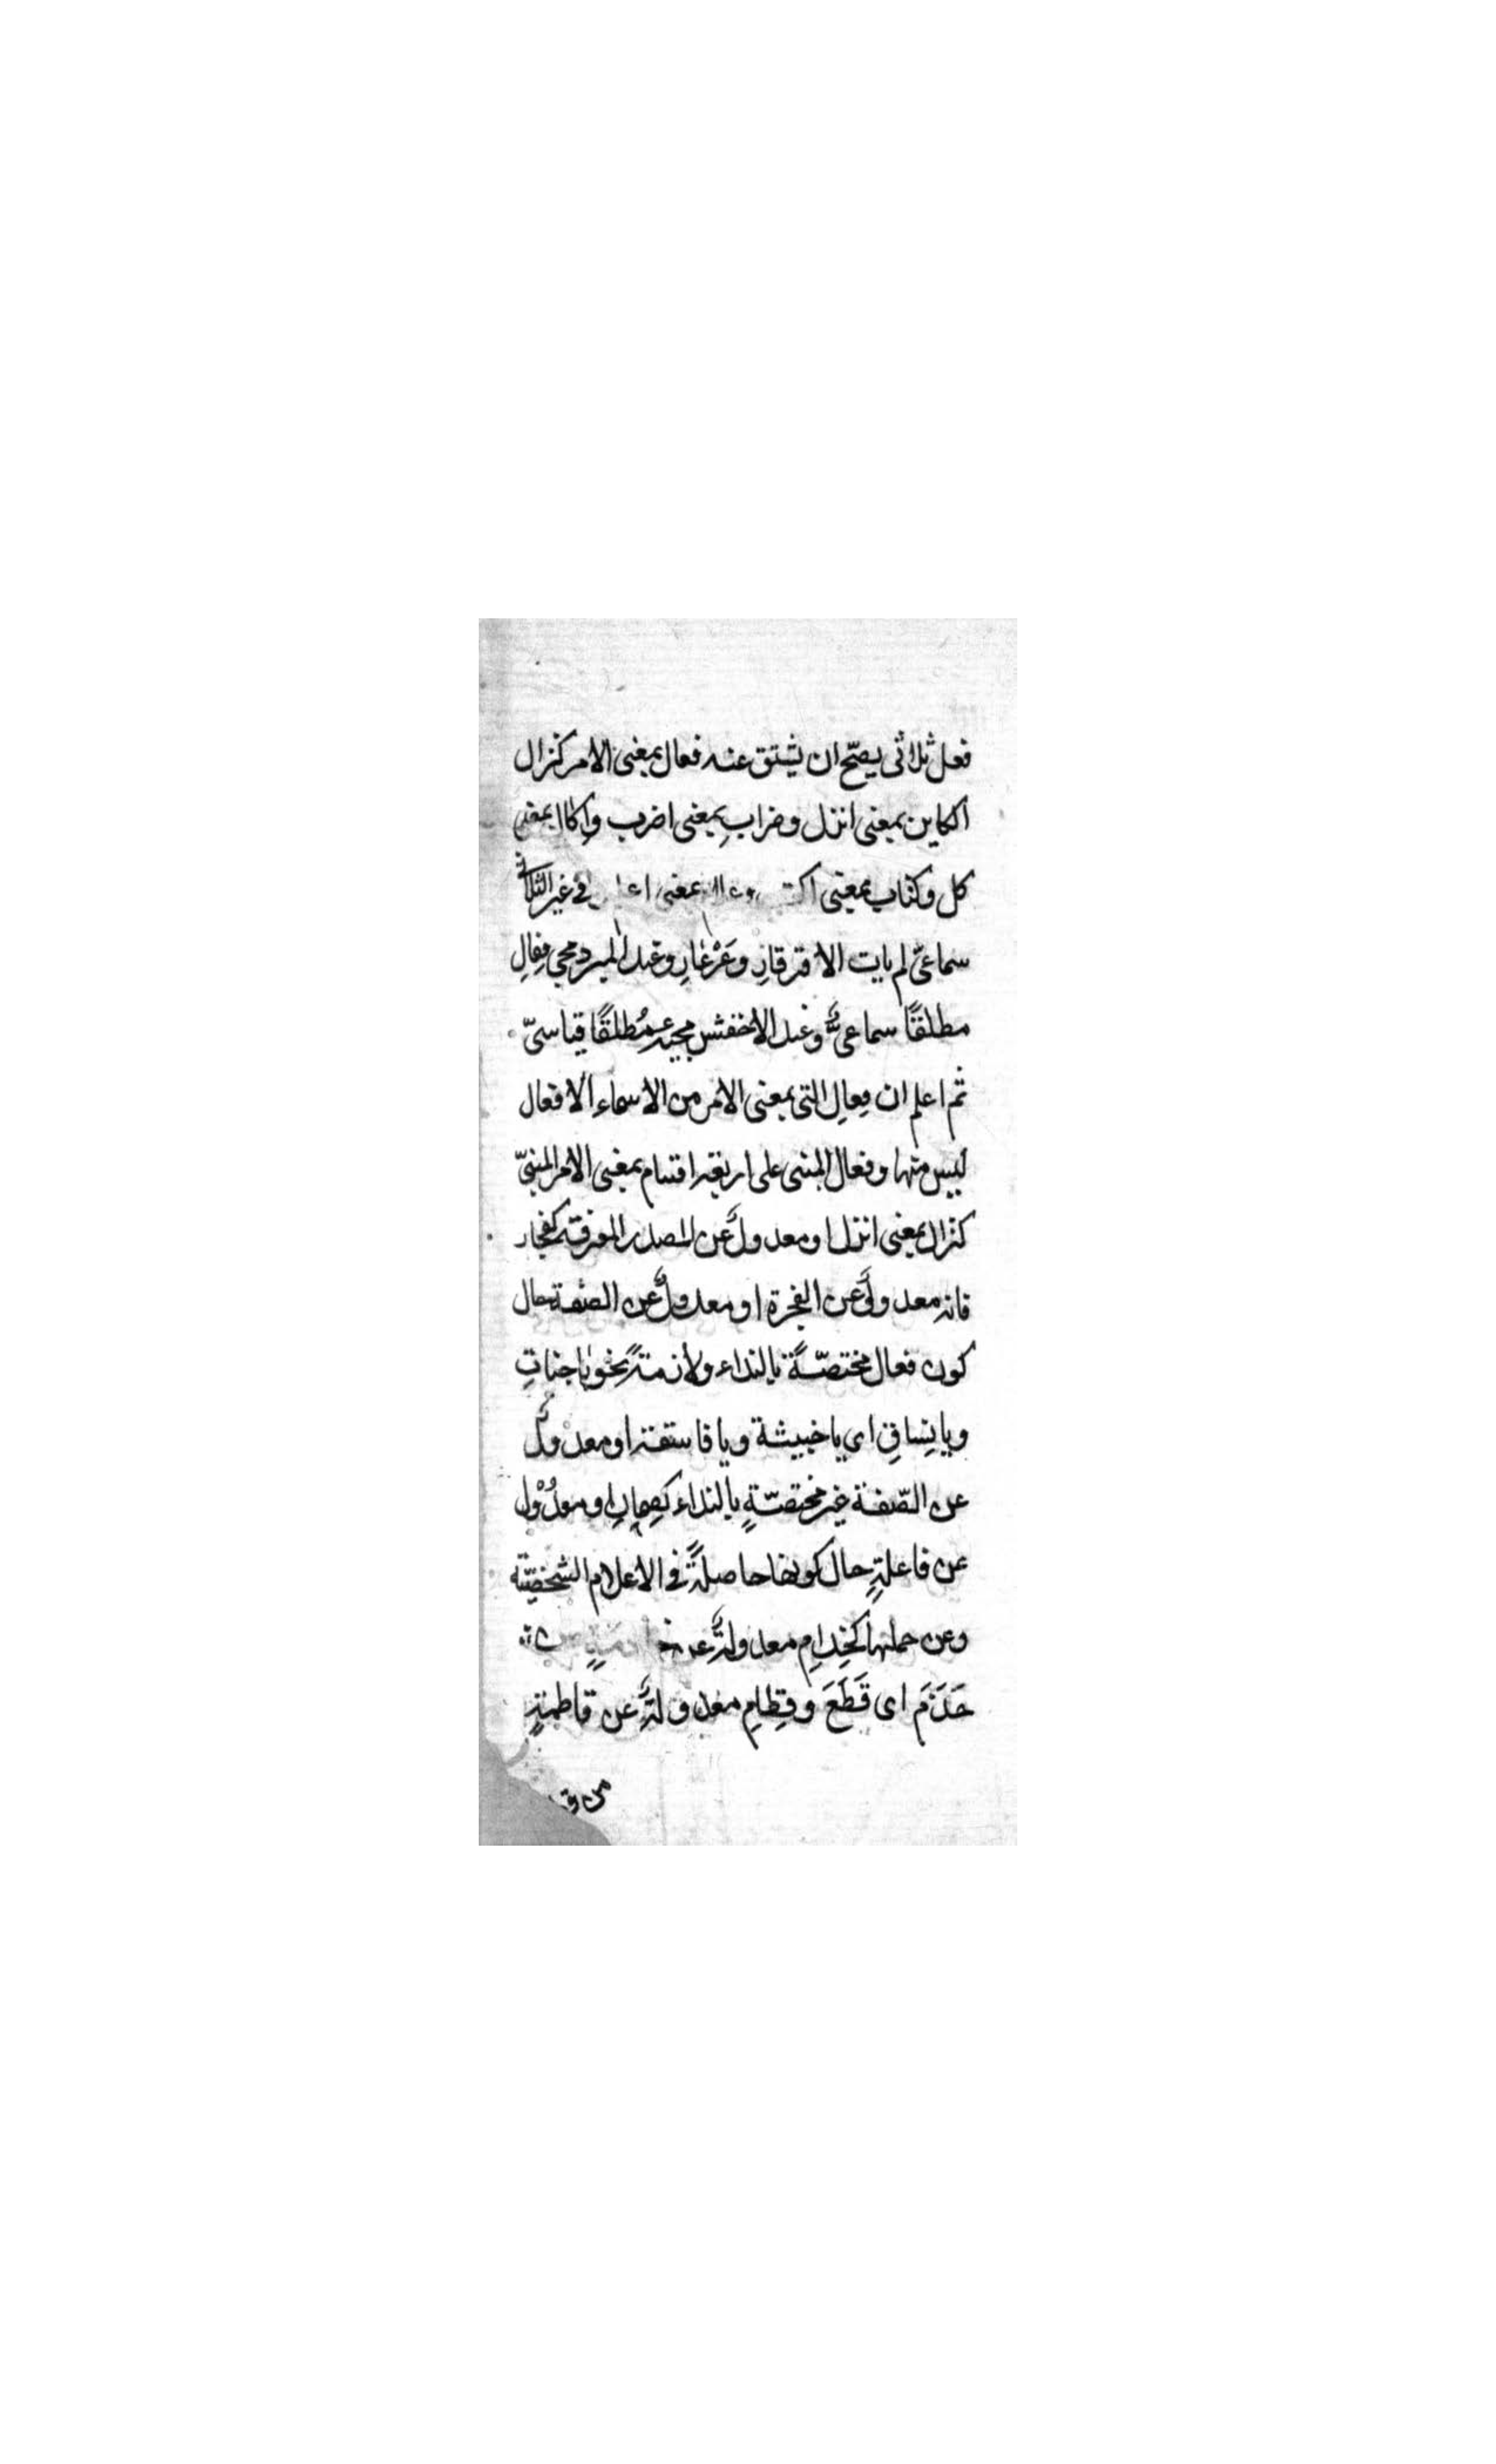 فعل ثلاثى يصحّ ان يشتق عنه فعال بمعنى الامر كنزال
الكاين بمعنى انزل وضرابِ بمعنى اضرب واكال بمعنى
كل وكتاب بمعنى بمعنى فى غير الثلاثى
سماعىّ لم يات الا قرقارِ وعَرْعَارِ وعند المبرد مجى فِعالِ
مطلقًا سماعىٌّ وعند الاخفش مجيئه مُطلقًا قياسىّ
ثم اعلم ان فِعالِ التى بمعنى الامر من الاسماء الافعال
ليس منها وفعال المبنى على اربعة اقسام بمعنى الامر المبنىّ
كنزال بمعنى انزل او معدولٌ عن المصدر المعرفة كفجار
فانه معدولٌ عن الفجرة او معدولٌ عن الصفة حال
كون فعال مختصّةً بالنداء ولازمةً نحو ياخباثِ
ويا فِساقِ اى يا خبيثة ويا فاسقة او معدولٌ
عن الصّفة غير مختصّةٍ بالنداء او معدُوْل
عن فاعلةٍ حال كونها حاصلةً فى الاعلام الشخصيّة
وعن حملتها كخِدامِ معدولةٌ عن
حَذَمَ اى قَطَعَ وقِطامِ معدولةٌ عن قاطمةٍ
من